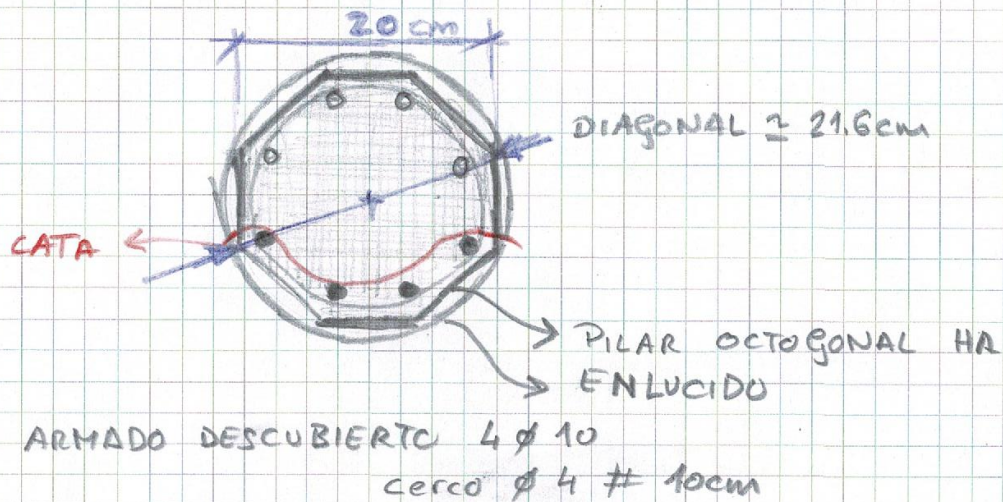 20 cm
DIAGONAL ≃ 21.6cm
CATA
PILAR OCTOGONAL HA
ENLUCIDO
ARMADO DESCUBIERTO 4 ø 10
cerco ø 4 # 10cm